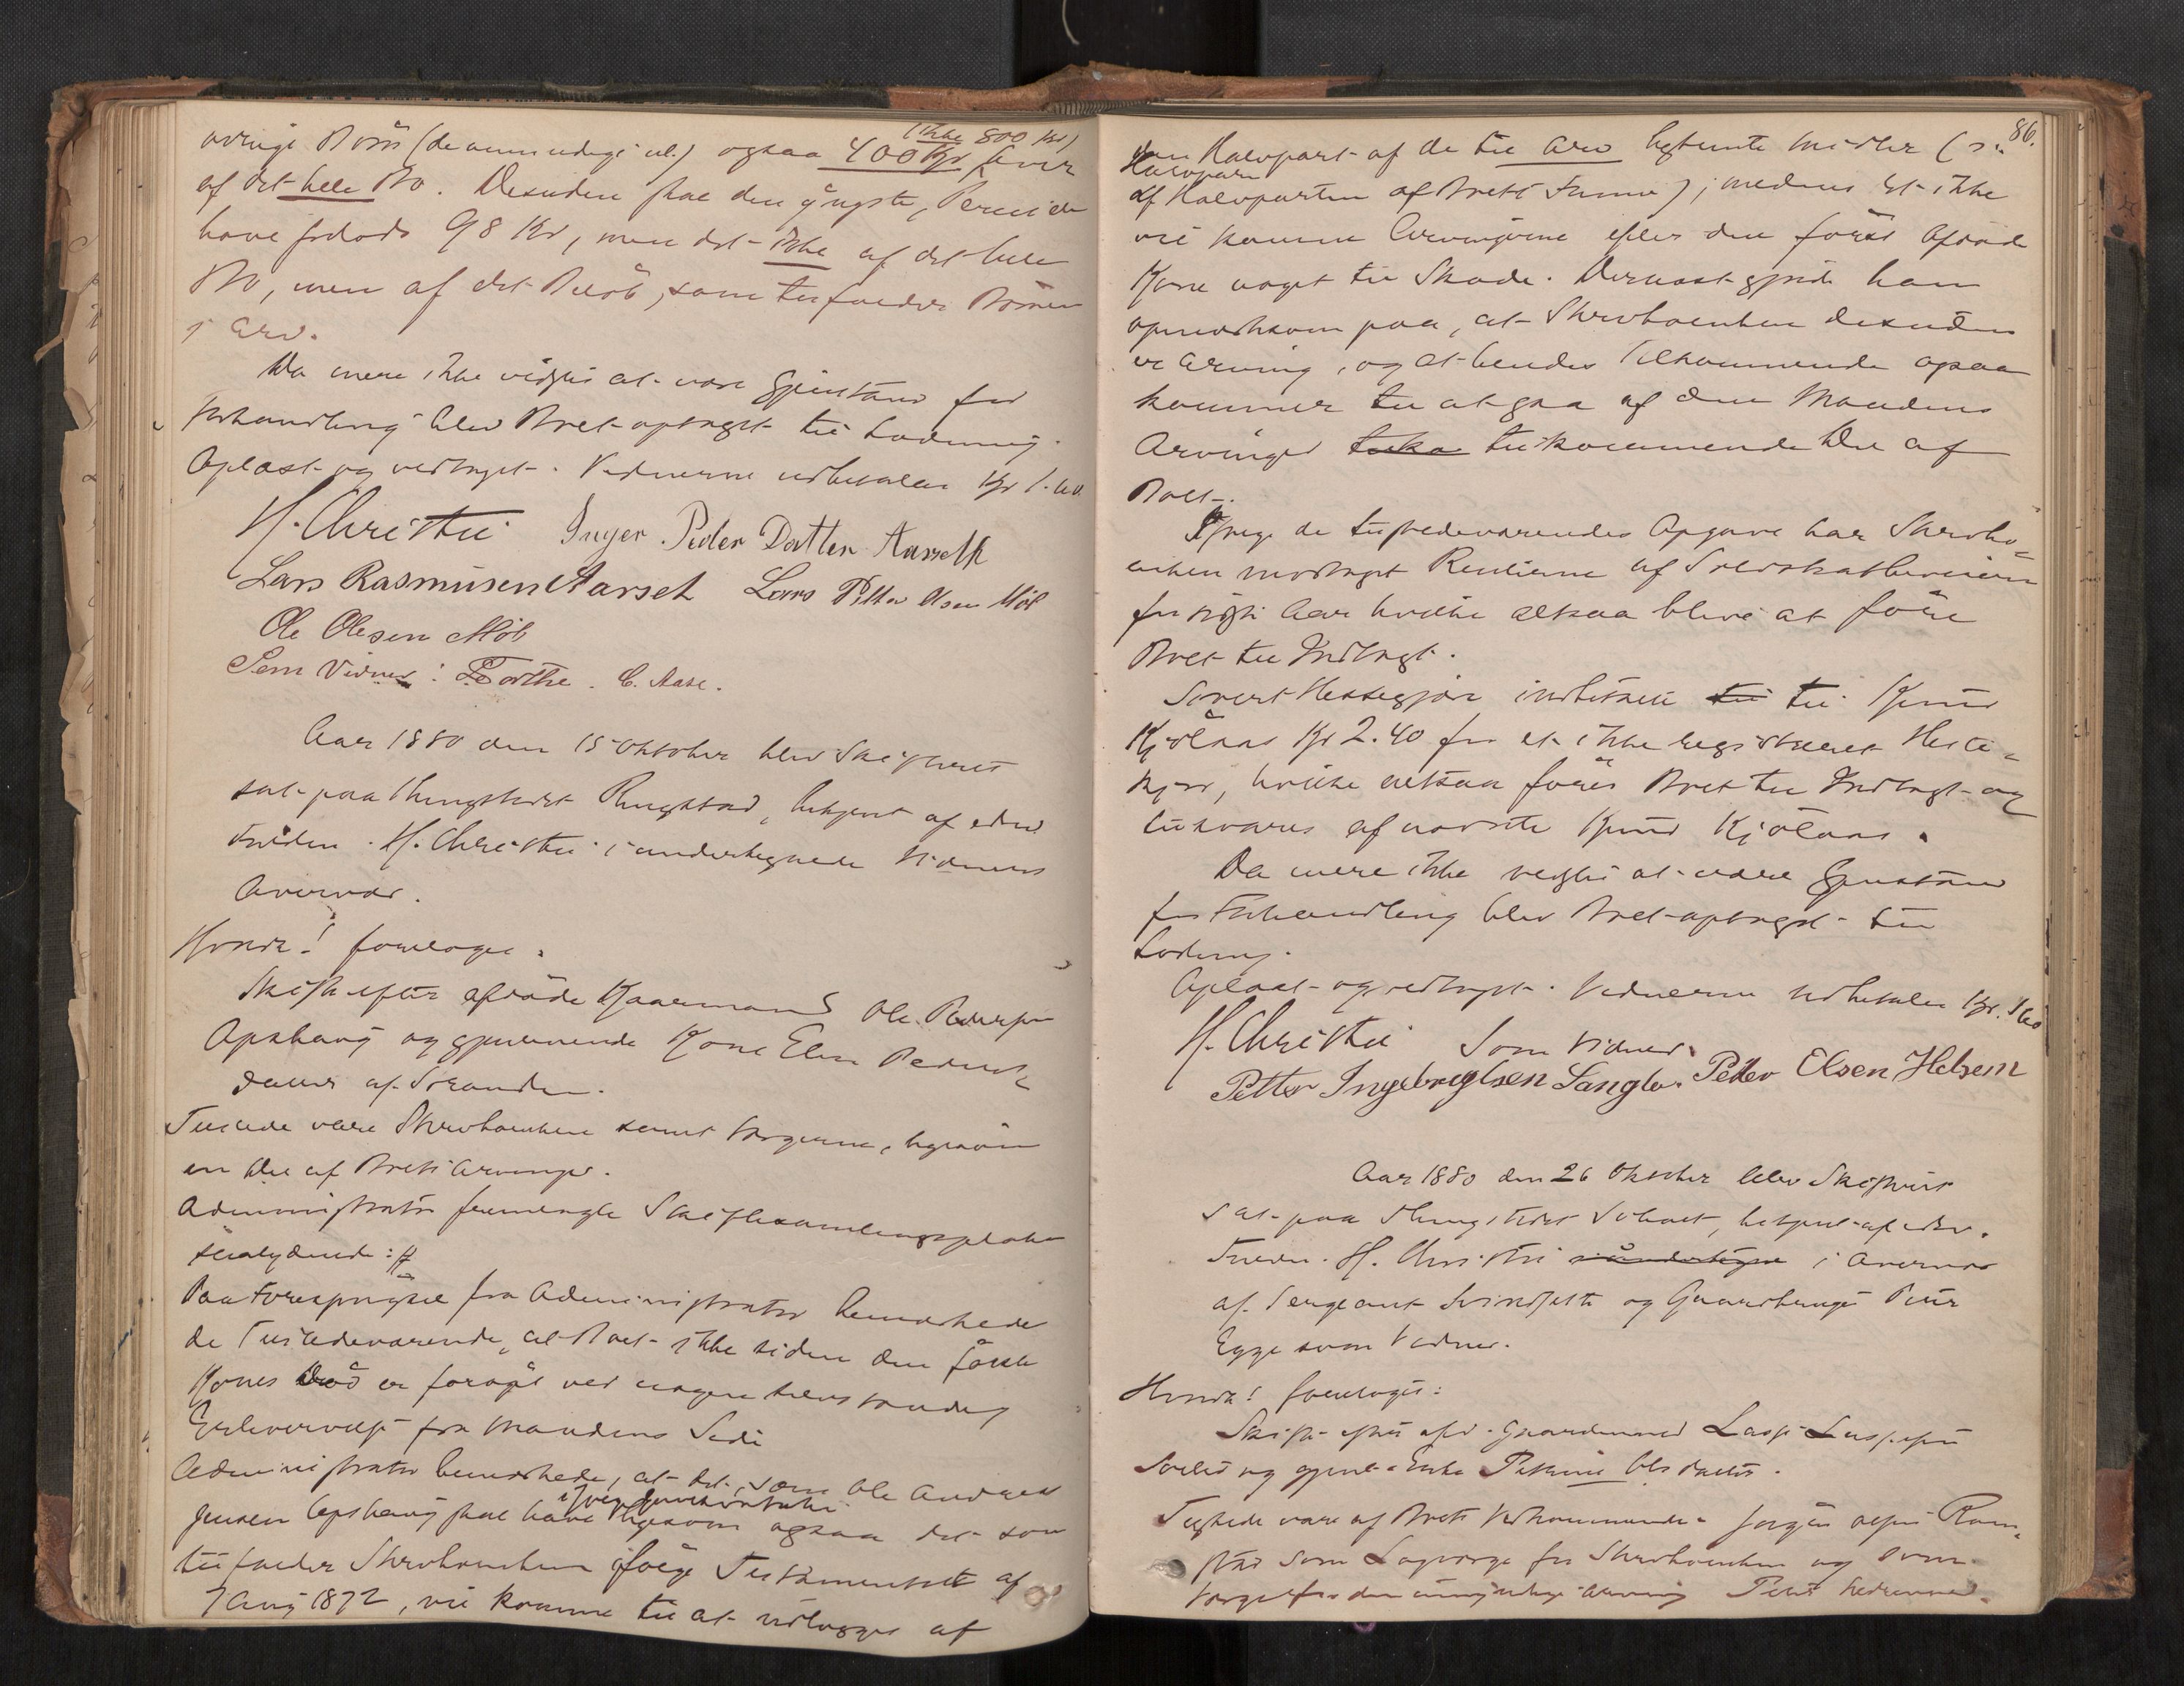 (ikke 800 Kr)
øvrige Børn (de umyndige nl.) ogsaa 400 Kr hver
af det hele Bo. Desuden skal den yngste, Pernide
have forlods 98 Kr, men det ikke af det hele
Bo, men af det Beløb, som tilfalder Børnene
i Arv.
Da mere ikke vidstes at være Gjenstand for
Forhandling blev Boet optaget til Lodning.
Oplæst og vedtaget. Vidnerne udbetales Kr 1.60.
H. Christie Inger Peder Datter Aarseth
Lars Rasmusen Aarset Lars Petter Olsen Høl
Ole Olesen Høl
Som Vidner: C. Aase.
Aar 1880 den 15 Oktober blev Skifteret
sat paa Thingstedet Ringstad, betjent af edsv.
Fuldm. H. Christie i undertegnede Vidners
Overvær.
Hvorda! foretoges:
Skifte efter afdøde Kaarmand Ole Pedersen
Opshaug og gjenlevende Kone Elen Peders
datter af Stranden.
Tilstede vare Stervboenken samt Værgerne, ligesom
en Del af Boets Arvinger.
Administrator fremlagde Skiftesamlingsplakat
saalydende: #
Paa Forespørgsel fra Administrator bemærkede
de Tilstedeværende, at Boet ikke siden den første
Kones Død er forøget ved nogen
Erhvervelse fra Mandens Side
Administrator bemærkede, at det, som Ole Andreas
Jensen Opshaug skal have ligesom ogsaa det som
tilfalder Stervboenken ifølge Testamentet af
7 Aug 1872, vil komme til at udlægges af
86.
den Halvpart af de til Arv bestemte Midler (o:
Halvpart
af Halvparten af Boets Summa); medens det ikke
vil komme Arvingerne efter den først afdøde
Kone noget til Skade. Dernæst gjorde han
opmærksom paa, at Stervboenken desuden
er Arving, og at hendes Tilkommende ogsaa
kommer til at gaa af den Mandens
Arvinger tilko tilkommende Del af
Boet.
Ifølge de tilstedeværendes Opgave har Stervbo-
enken modtaget Renterne af
for Aar hvilke altsaa blive at føre
Boet til Indtægt.
Sivert Hessegjær indbetalte til til Knud
Kjølaas Kr 2.40 for et ikke registreret Heste-
kjør, hvilke altsaa føres Boet til Indtægt og
tilsvares af nævnte Knud Kjølaas.
Da mere ikke vidstes at være Gjenstand
for Forhandling blev Boet optaget til
Lodning.
Oplæst og vedtaget. Vidnerne udbetales Kr. 1.60
H. Christie Som Vidner:
Petter Ingebrigtsen Langlo. Petter Elsen Helsem
Aar 1880 den 26 Oktober blev Skifteret
sat paa Thingstedet Søholt, betjent af edsv.
Fuldm. H. Christie i undertegne i Overvær
af Sergeant Svindseth og Gaardbruger Peter
Egge som Vidner.
Hvorda! foretoges:
Skifte efter afd. Gaardmand Lasse Lassesen
og gjenl. Enke Petrine Olsdatter.
Tilstede vare af Boets Vedkommende Jørgen Olsen Ram-
stad som Lagværge for Stervboenken og som
Værge for den umyndige Arving